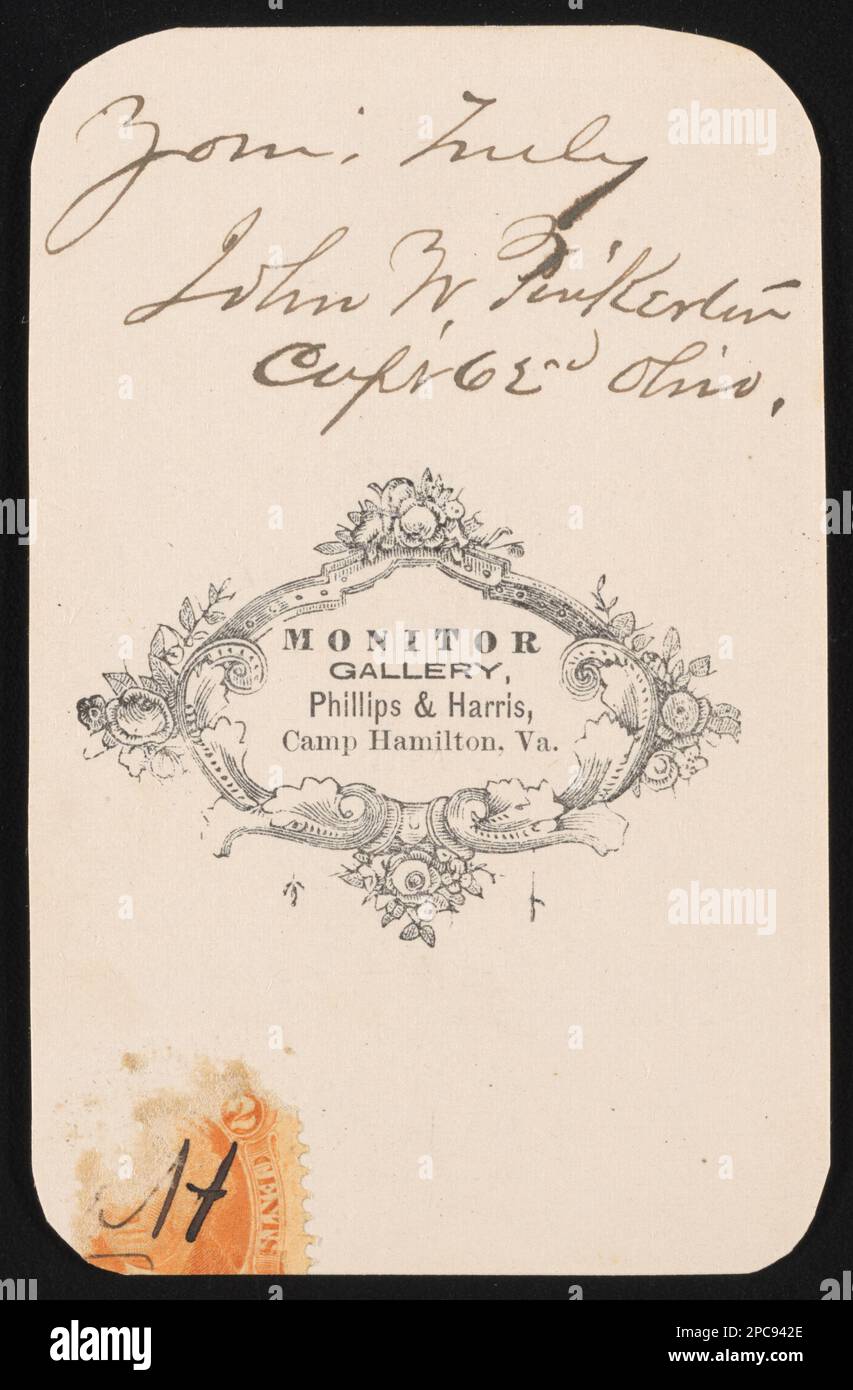 Yours Truly
John W. Pinkerton
Capt 62nd Ohio.
MONITOR
GALLERY,
Phillips & Harris,
Camp Hamilton, Va.
2
CENTS
alamy
alamy
Image ID: 2PC942E
www.alamy.com